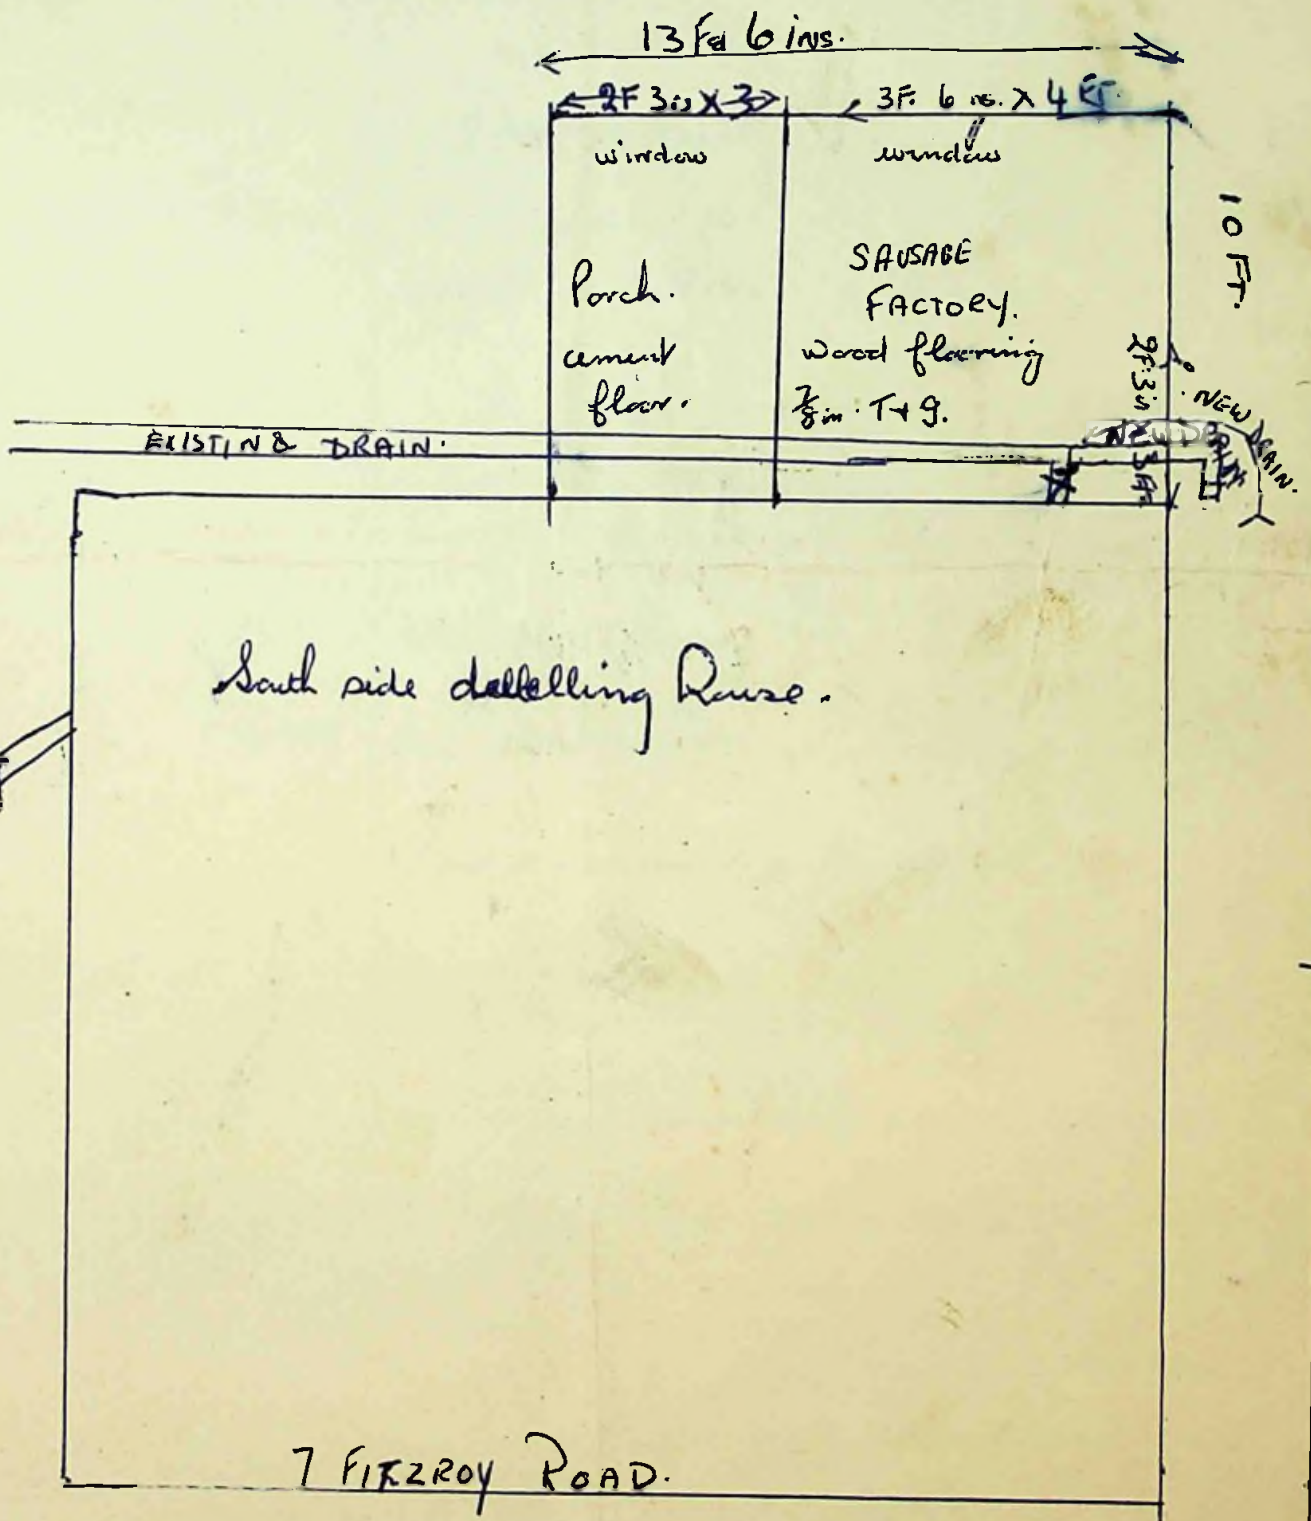 13 Ft 6 ins.
2F 3is X 3
3F. 6 ns. X 4 FT.
window
window
10 FT.
Porch.
cement
floor.
SAUSAGE
FACTORY.
wood flooring
7/8 in. T + g.
2F.3is
X 3 Ft
NEW DRAIN.
EXISTING DRAIN.
South side dwelling House.
7 FITZROY ROAD.